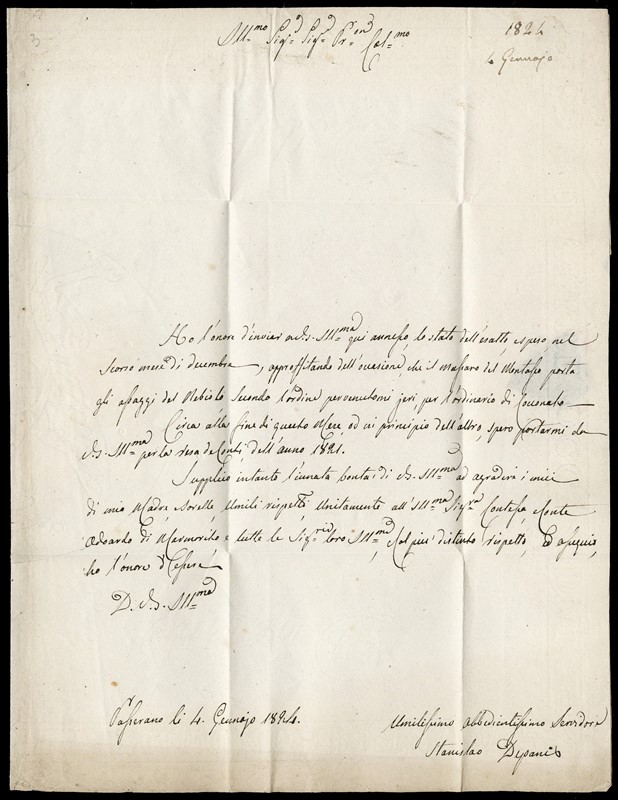 1824
4 Gennajo
Ill:mo Sig:r Sig:r Pr:on Col:mo
Ho l'onore d'inviar a V.S. Ill:ma qui annesso, lo stato dell'esatto, e speso nel
scorso mese di decembre, approffitando dell'occasione che il massaro del porta
gli assaggi del Nebiolo secondo l'ordine pervenutomi jeri, per l'ordinario di Coconato
Circa alla fine di questo Mese, od in principio dell'altro, spero portarmi da
V.S. Ill:ma per la resa de Conti dell'anno
Supplico intanto l'innata bontà di V.S. Ill:ma ad agradire i miei
di mia Madre Sorelle Umili rispetti Unitamente all'Ill:ma Sig:ra Contessa, Conte
Edoardo di Mermorito e tutte le Sig:rie loro Ill:me, Col più distinto rispetto, ed ossequio,
ho l'onore d'essere
D. V.S. Ill:ma
Passerano li 4. Gennajo 1824.
Umilissimo Obbedientissimo Servidore
Stanislao